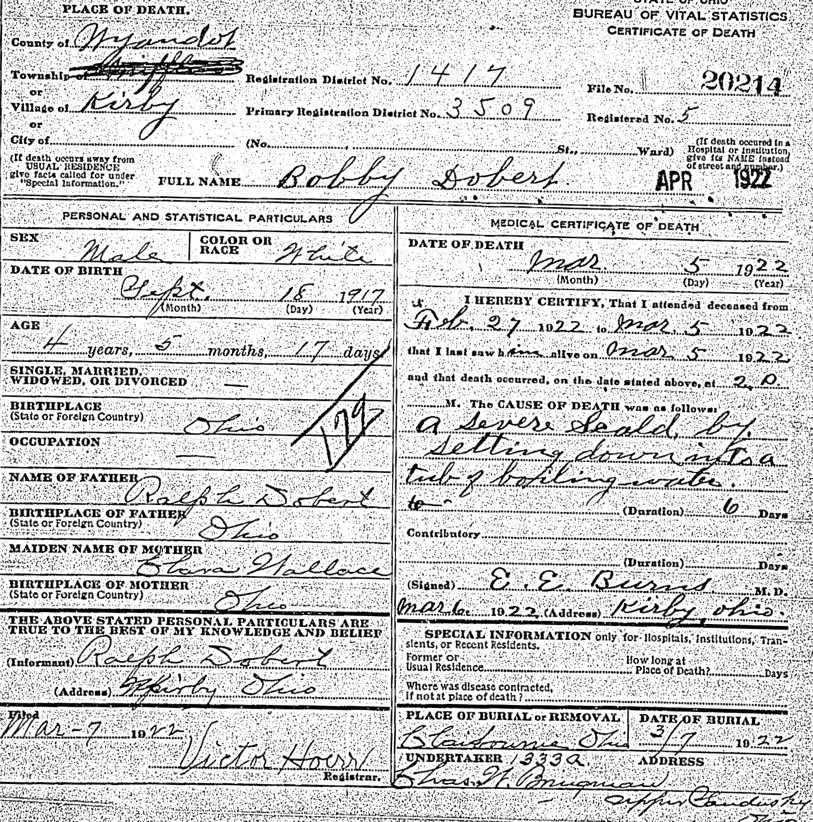 PLACE OF DEATH.
STATE OF OHIO
BUREAU OF VITAL STATISTICS
CERTIFICATE OF DEATH
County of Wyandot
Township of
or
Village of Kirby
or
City of
Registration District No. 1417
File No. 20214
Primary Registration District No. 3509
Registered No. 5
(No. St., Ward)
(If death occured in a Hospital or Institution, give its NAME instead of street and number.)
(If death occurs away from USUAL RESIDENCE give facts called for under "Special Information.")
FULL NAME Bobby Dobert
APR 1922
PERSONAL AND STATISTICAL PARTICULARS
SEX Male
COLOR OR RACE White
DATE OF BIRTH Sept. 18 1917
(Month) (Day) (Year)
AGE
4 years, 5 months, 17 days
SINGLE, MARRIED, WIDOWED, OR DIVORCED —
BIRTHPLACE
(State or Foreign Country) Ohio
179
OCCUPATION —
NAME OF FATHER Ralph Dobert
BIRTHPLACE OF FATHER
(State or Foreign Country) Ohio
MAIDEN NAME OF MOTHER Clara Wallace
BIRTHPLACE OF MOTHER
(State or Foreign Country) Ohio
THE ABOVE STATED PERSONAL PARTICULARS ARE
TRUE TO THE BEST OF MY KNOWLEDGE AND BELIEF
(Informant) Ralph Dobert
(Address) Kirby Ohio
Filed
Mar-7 1922
Victor Hoerr
Registrar.
MEDICAL CERTIFICATE OF DEATH
DATE OF DEATH
Mar. 5 1922
(Month) (Day) (Year)
I HEREBY CERTIFY, That I attended deceased from
Feb. 27 1922 to Mar 5 1922
that I last saw him alive on Mar 5 1922
and that death occurred, on the date stated above, at 2 P
M. The CAUSE OF DEATH was as follows:
a severe Scald, by
setting down into a
tub of boiling water.
(Duration) 6 Days
Contributory
(Duration) Days
(Signed) E. E. Burns M. D.
Mar 6. 1922 (Address) Kirby, Ohio.
SPECIAL INFORMATION only for Hospitals, Institutions, Tran-
sients, or Recent Residents.
Former or
Usual Residence
How long at
Place of Death? Days
Where was disease contracted,
If not at place of death?
PLACE OF BURIAL or REMOVAL
DATE OF BURIAL
Ohio
3/7 1922
UNDERTAKER 1333A ADDRESS
Chas. W. Brugman
Upper Sandusky
Ohio